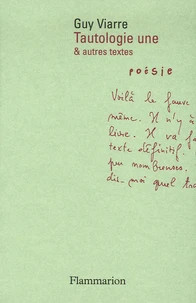 Guy Viarre
Tautologie une
& autres textes
poésie
Voilà le fauve
même. Il n'y à
livre. Il va fa
texte définitif.
peu nombreuses.
dis-moi quel tra
Flammarion